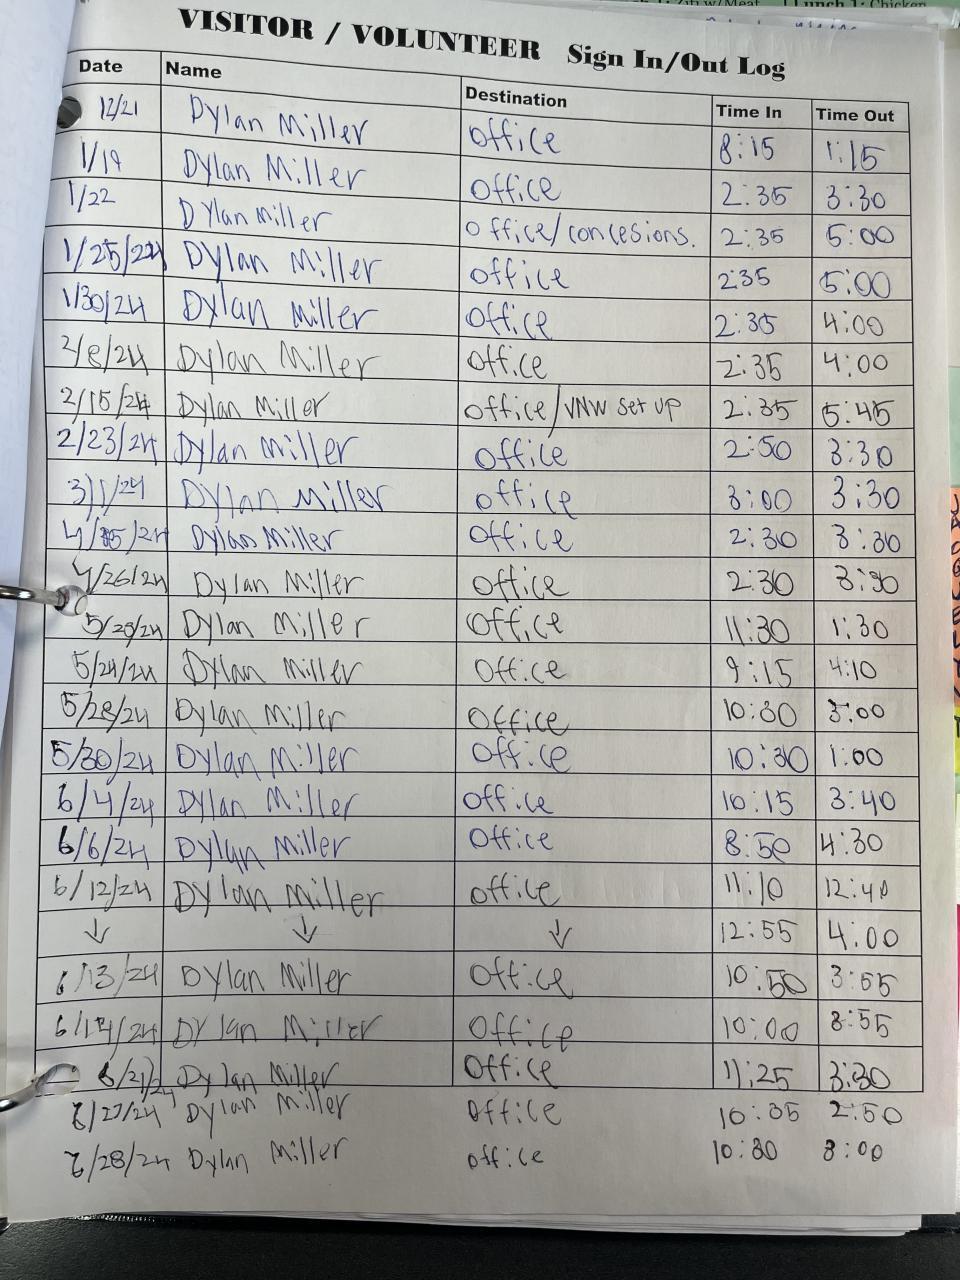 VISITOR / VOLUNTEER Sign In/Out Log
Date Name Destination Time In Time Out
12/21 Dylan Miller office 8:15 1:15
1/19 Dylan Miller office 2:35 3:30
1/22 Dylan Miller office/concesions. 2:35 5:00
1/25/24 Dylan Miller office 2:35 5:00
1/30/24 Dylan Miller office 2:35 4:00
2/8/24 Dylan Miller office 2:35 4:00
2/15/24 Dylan Miller office/VNW set up 2:35 5:45
2/23/24 Dylan Miller office 2:50 3:30
3/1/24 Dylan Miller office 3:00 3:30
Dylan Miller office 2:30 3:30
4/26/24 Dylan Miller office 2:30 3:30
Dylan Miller office 11:30 1:30
5/24/24 Dylan Miller office 9:15 4:10
5/28/24 Dylan Miller office 10:30 3:00
5/30/24 Dylan Miller office 10:30 1:00
6/4/24 Dylan Miller office 10:15 3:40
6/6/24 Dylan Miller office 8:50 4:30
6/12/24 Dylan Miller office 11:10 12:40
↓ ↓ ↓ 12:55 4:00
6/13/24 Dylan Miller office 10:50 3:55
Dylan Miller office 10:00 3:55
6/21/24 Dylan Miller office 11:25 3:30
6/27/24 Dylan Miller office 10:35 2:50
6/28/24 Dylan Miller office 10:30 3:00